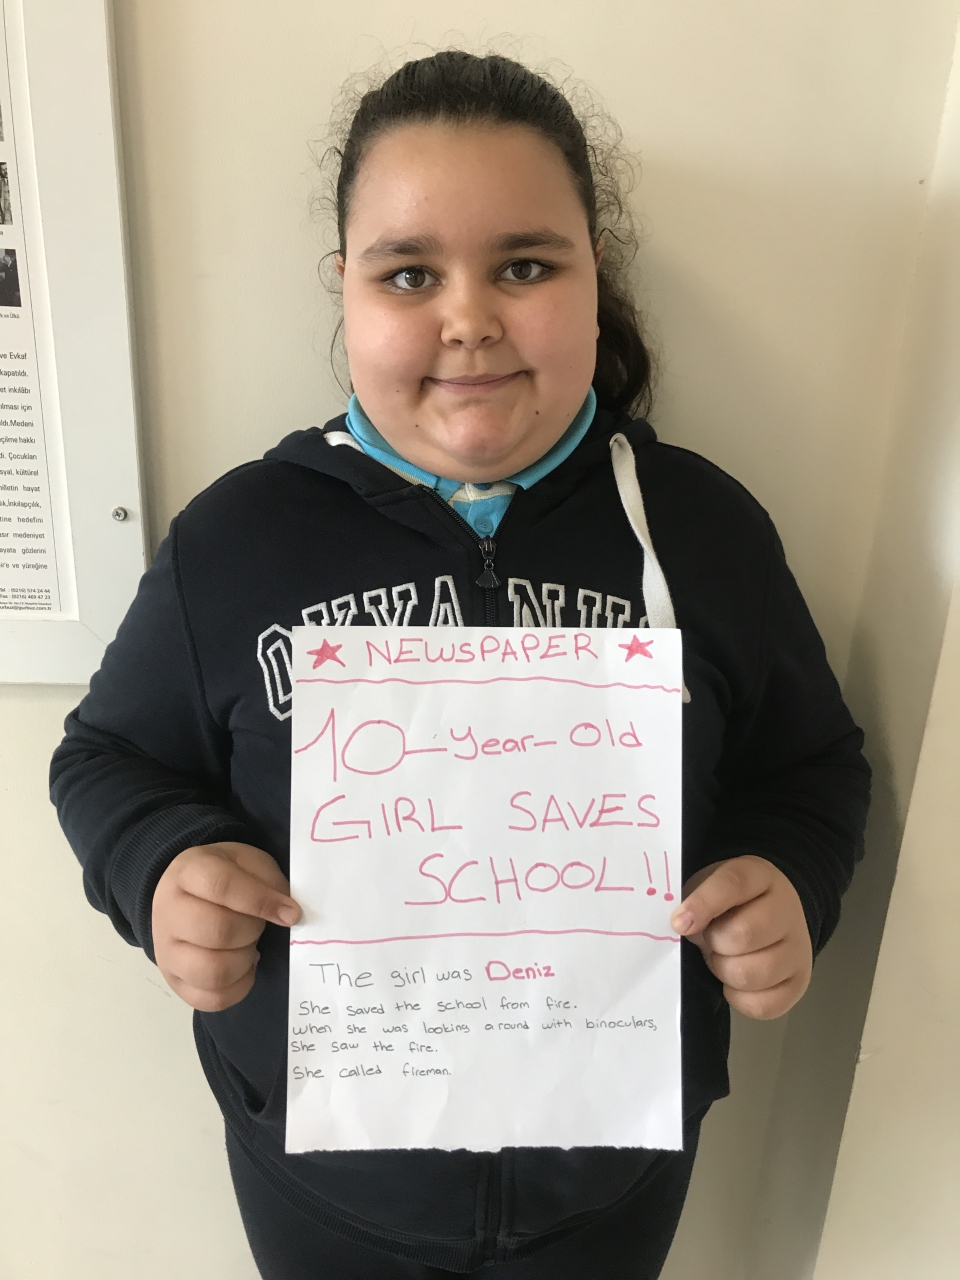 ve Evkaf
kapatıldı.
et inkılâbı
ılması için
ldı.Medeni
çilme hakkı
dı. Çocukları
syal, kültürel
milletin hayat
lık,İnkılapçılık,
tine hedefini
asır medeniyet
ayata gözlerini
ir'e ve yüreğine
★ NEWSPAPER ★
10-Year-Old
GIRL SAVES
SCHOOL!!
The girl was Deniz
She saved the school from fire.
When she was looking around with binoculars,
She saw the fire.
She called fireman.